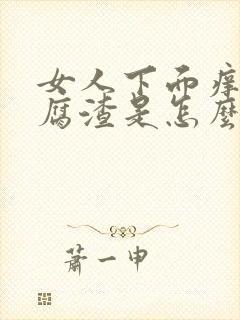 女人下面痒
腐渣是怎麽
萧一申